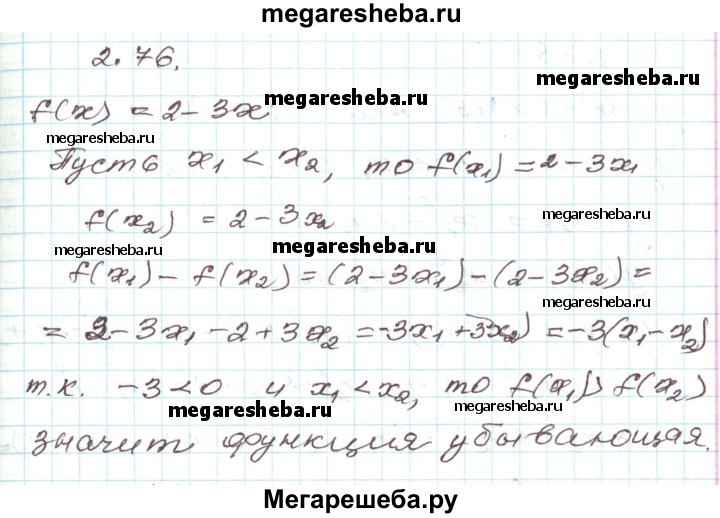 megaresheba.ru
2.76.
megaresheba.ru
f(x) = 2 - 3x megaresheba.ru
megaresheba.ru
Пусть x₁ < x₂, то f(x₁) = 2 - 3x₁
f(x₂) = 2 - 3x₂ megaresheba.ru
megaresheba.ru megaresheba.ru
f(x₁) - f(x₂) = (2 - 3x₁) - (2 - 3x₂) =
megaresheba.ru
= 2 - 3x₁ - 2 + 3x₂ = -3x₁ + 3x₂) = -3(x₁ - x₂)
т.к. -3 < 0 и x₁ < x₂, то f(x₁) > f(x₂)
megaresheba.ru megaresheba.ru
значит функция убывающая.
Мегарешеба.ру